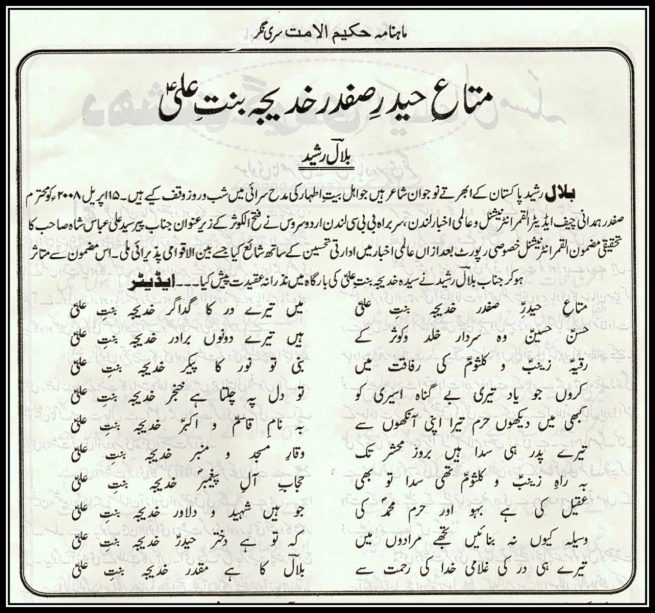 ماہنامہ حکیم الامت سری نگر
متاع حیدرِ صفدر خدیجہ بنتِ علیؑ
بلالؔ رشید
بلال رشید پاکستان کے ابھرتے نوجوان شاعر ہیں جو اہل بیتِ اطہار کی مدح سرائی میں شب و روز وقف کیے ہیں۔ ۱۵ اپریل ۲۰۰۸ء کو محترم
صفدر ہمدانی چیف ایڈیٹر القمر انٹرنیشنل و عالمی اخبار لندن، سربراہ بی بی سی لندن اردو سروس نے فتح الکوثر کے زیرِ عنوان جناب پیر سید علی عباس شاہ صاحب کا
تحقیقی مضمون القمر انٹرنیشنل خصوصی رپورٹ بعد ازاں عالمی اخبار میں ادارتی تحسین کے ساتھ شائع کیا جسے بین الاقوامی پذیرائی ملی۔ اس مضمون سے متاثر
ہو کر جناب بلالؔ رشید نے سیدہ خدیجہ بنتِ علیؑ کی بارگاہ میں نذرانہ عقیدت پیش کیا۔۔۔ ایڈیٹر
متاعِ حیدرِؑ صفدر خدیجہ بنتِ علیؑ میں تیرے در کا گداگر خدیجہ بنتِ علیؑ
حسنؑ حسینؑ وہ سردار خلد و کوثر کے ہیں تیرے دونوں برادر خدیجہ بنتِ علیؑ
رقیہؑ زینبؑ و کلثومؑ کی رفاقت میں بنی تو نور کا پیکر خدیجہ بنتِ علیؑ
کروں جو یاد تیری بے گناہ اسیری کو تو دل پہ چلتا ہے خنجر خدیجہ بنتِ علیؑ
کبھی میں دیکھوں حرم تیرا اپنی آنکھوں سے بہ نامِ قاسمؑ و اکبرؑ خدیجہ بنتِ علیؑ
تیرے پدر ہی سدا ہیں بروزِ محشر تک وقارِ مسجد و منبر خدیجہ بنتِ علیؑ
بہ راہِ زینبؑ و کلثومؑ تھی سدا تو بھی حجابِ آلِ پیغمبرؐ خدیجہ بنتِ علیؑ
عقیل کی ہے بہو اور حرم محمدؑ کی جو ہیں شہید و دلاور خدیجہ بنتِ علیؑ
وسیلہ کیوں نہ بنائیں تجھے مرادوں میں کہ تو ہے دخترِ حیدرؑ خدیجہ بنتِ علیؑ
تیرے ہی در کی غلامی خدا کی رحمت سے بلالؔ کا ہے مقدر خدیجہ بنتِ علیؑ